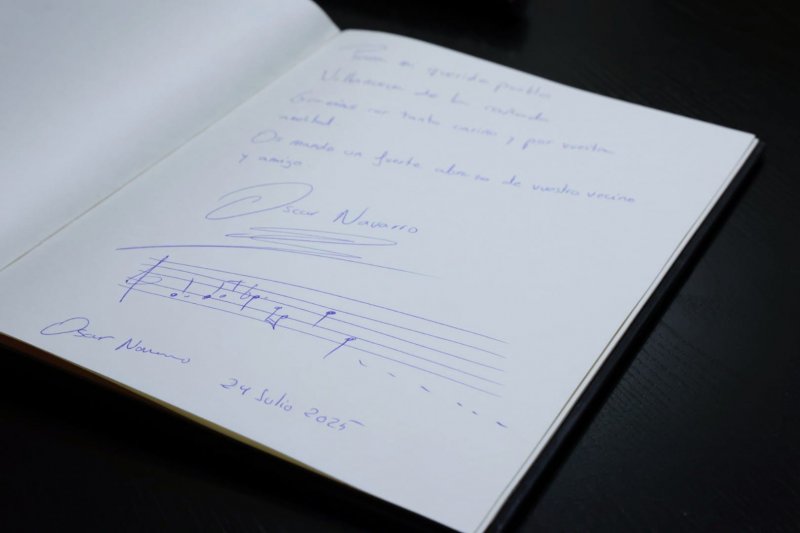 Para mi querido pueblo
Villanueva de la
Gracias por tanto cariño y por vuestra
amistad.
Os mando un fuerte abrazo de vuestro vecino
y amigo
Oscar Navarro
Oscar Navarro
24 Julio 2025